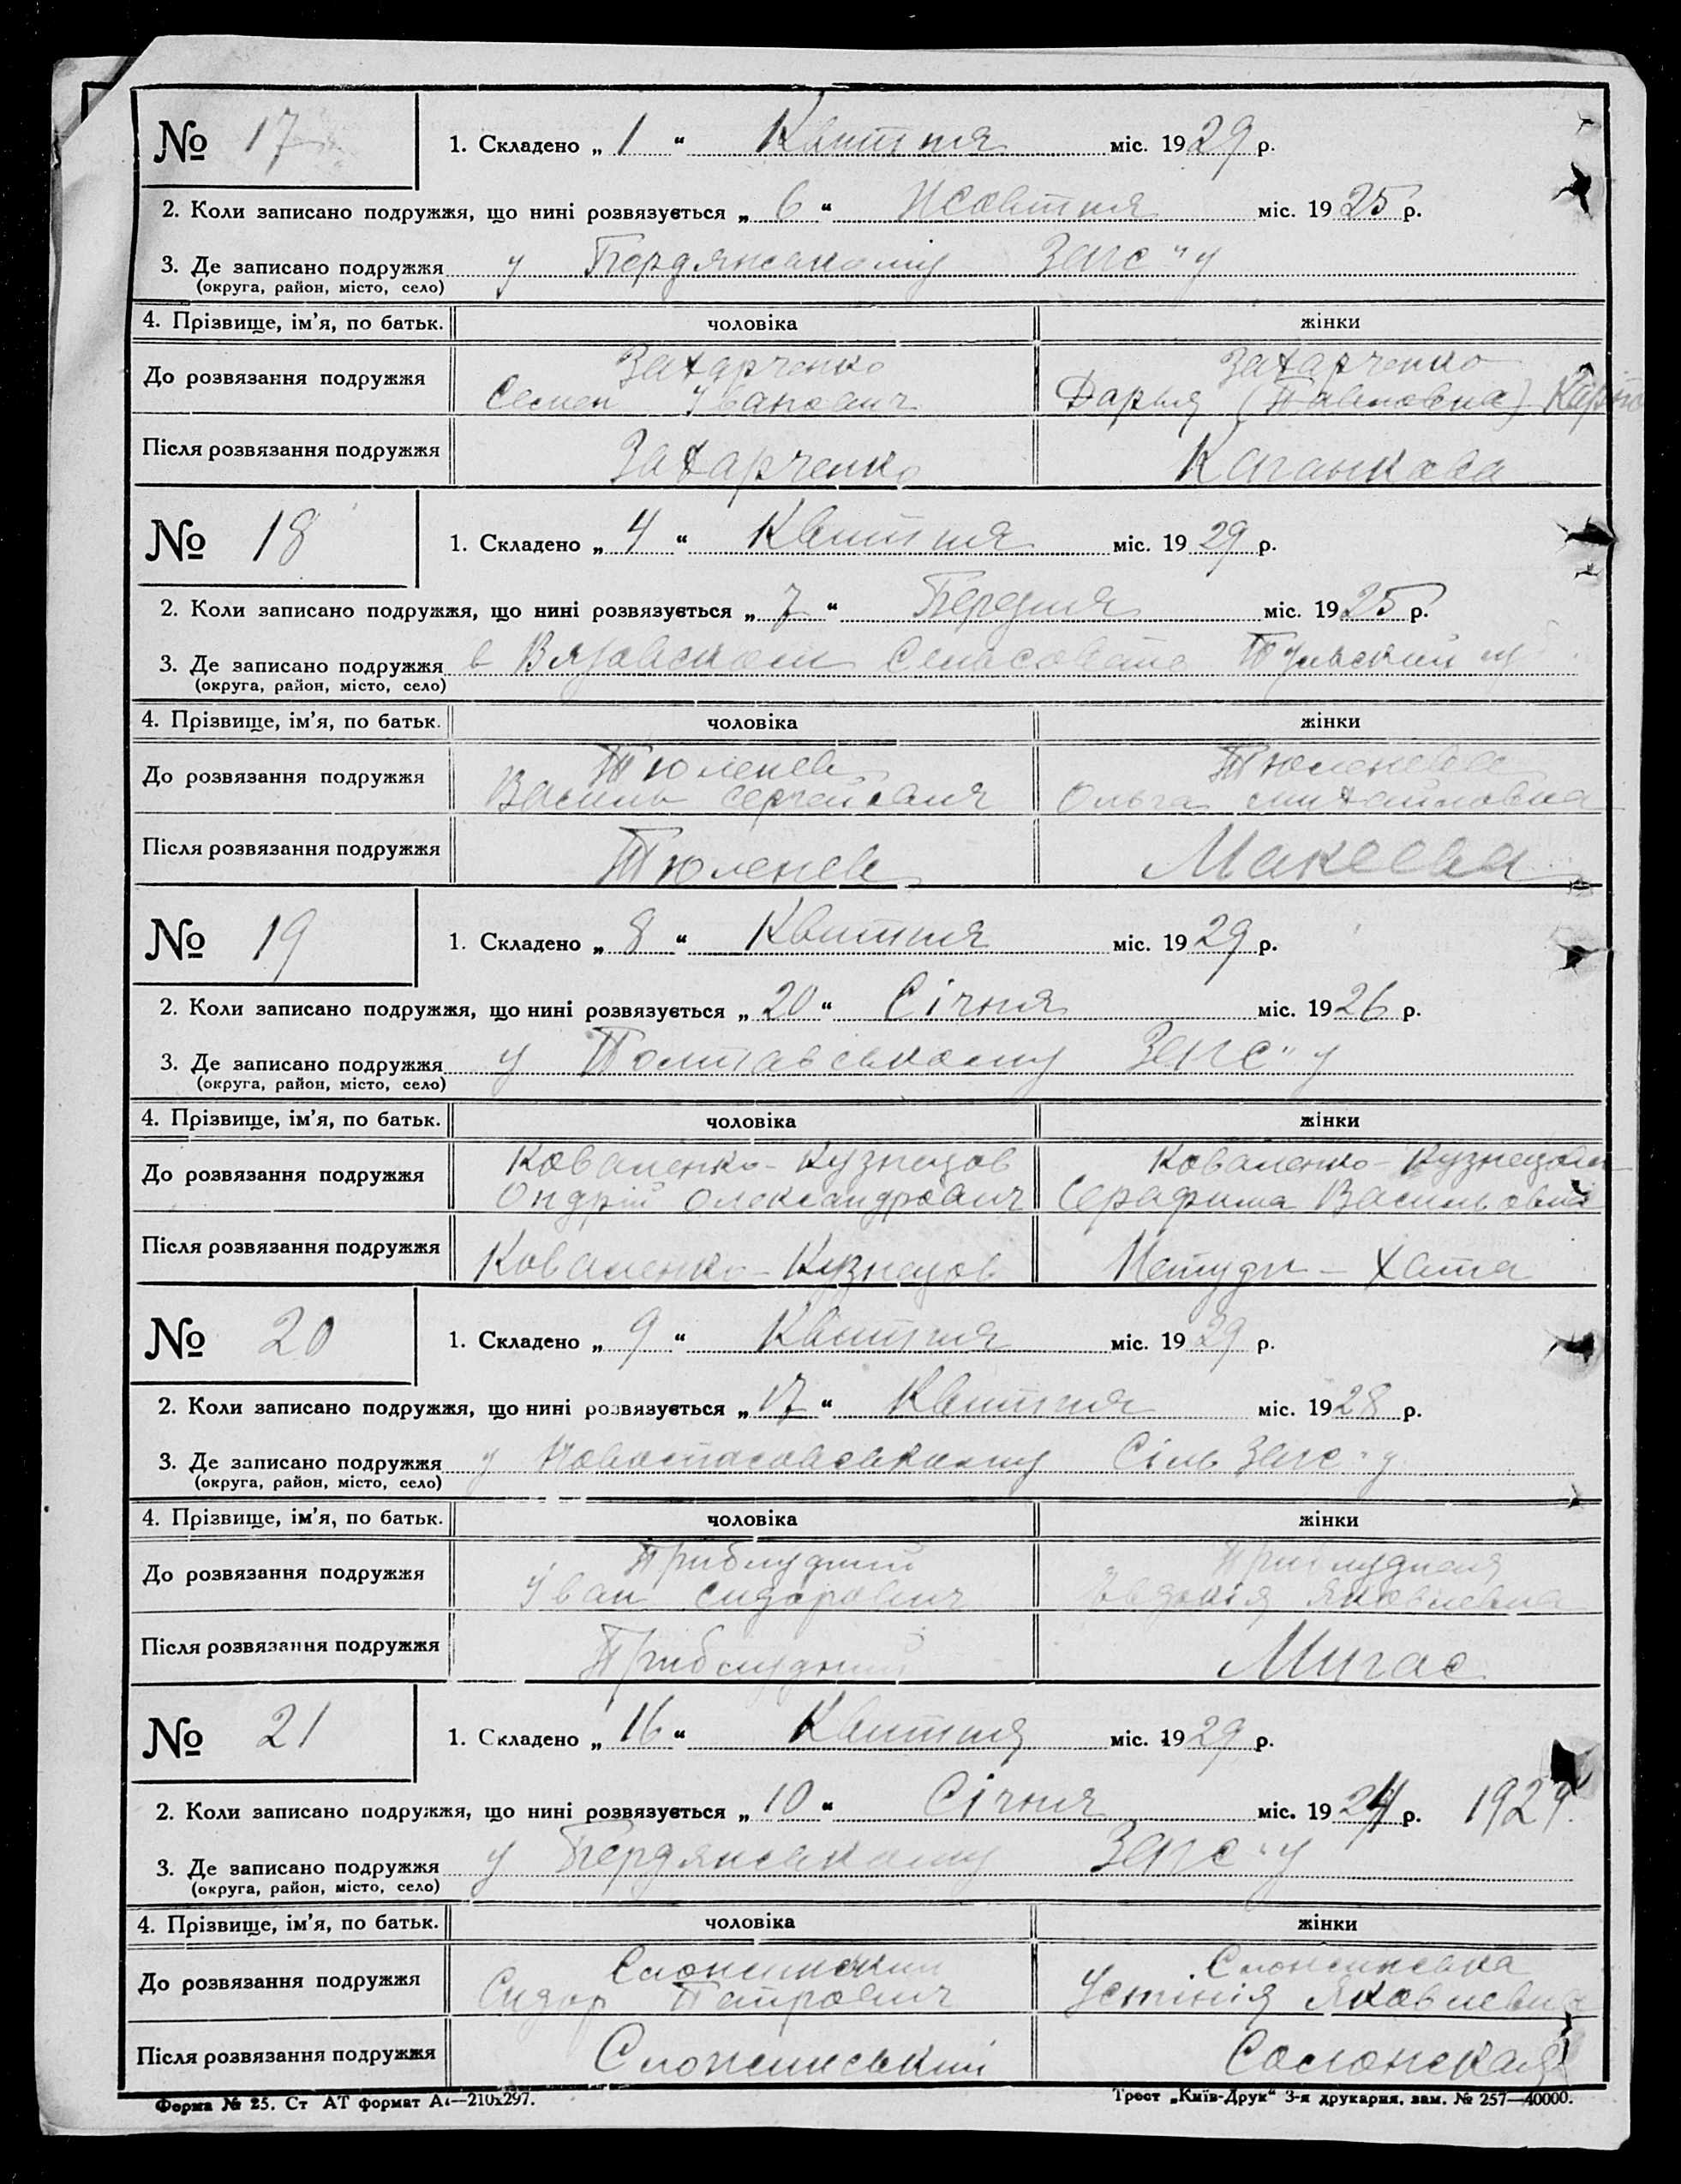 № 17 1. Складено „ 1 “ Квітня міс. 1929 р.
2. Коли записано подружжя, що нині розвязується „ 6 “ Жовтня міс. 1925 р.
3. Де записано подружжя у Бердянському Загс"у
(округа, район, місто, село)
4. Прізвище, ім’я, по батьк. чоловіка жінки
Захарченко Захарченко
До розвязання подружжя
Семен Іванович Дарья (Павловна)
Після розвязання подружжя Захарченко
№ 18 1. Складено „ 4 “ Квітня міс. 1929 р.
2. Коли записано подружжя, що нині розвязується „ 7 “ Березня міс. 1925 р.
3. Де записано подружжя в Вязовском Сельсовете Тульский
(округа, район, місто, село)
4. Прізвище, ім’я, по батьк. чоловіка жінки
Тюленев Тюленева
До розвязання подружжя
Василь Сергейович Ольга Михайловна
Після розвязання подружжя Тюленев Макеева
№ 19 1. Складено „ 8 “ Квітня міс. 1929 р.
2. Коли записано подружжя, що нині розвязується „ 20 “ Січня міс. 1926 р.
3. Де записано подружжя у Полтавському Загс"у
(округа, район, місто, село)
4. Прізвище, ім’я, по батьк. чоловіка жінки
Коваленко-Кузнецов Коваленко-Кузнецова
До розвязання подружжя
Ондрій Олександрович Серафима Васильовна
Після розвязання подружжя Коваленко-Кузнецов Хата
№ 20 1. Складено „ 9 “ Квітня міс. 1929 р.
2. Коли записано подружжя, що нині розвязується „ 17 “ Квітня міс. 1928 р.
3. Де записано подружжя у Сіль Загс"у
(округа, район, місто, село)
4. Прізвище, ім’я, по батьк. чоловіка жінки
Приблудний Приблудная
До розвязання подружжя
Іван Сидорович Явдокія Яковлевна
Після розвязання подружжя Приблудний Мигас
№ 21 1. Складено „ 16 “ Квітня міс. 1929 р.
2. Коли записано подружжя, що нині розвязується „ 10 “ Січня міс. 1924 р.
3. Де записано подружжя у Бердянському Загс"у
(округа, район, місто, село)
4. Прізвище, ім’я, по батьк. чоловіка жінки
До розвязання подружжя
Сидор Петрович Устінія Яковлевна
Після розвязання подружжя Слонимський Солонская
Форма № 25. Ст АТ формат А4—210х297. Трест „Київ-Друк“ 3-я друкарня, зам. № 257—40000.